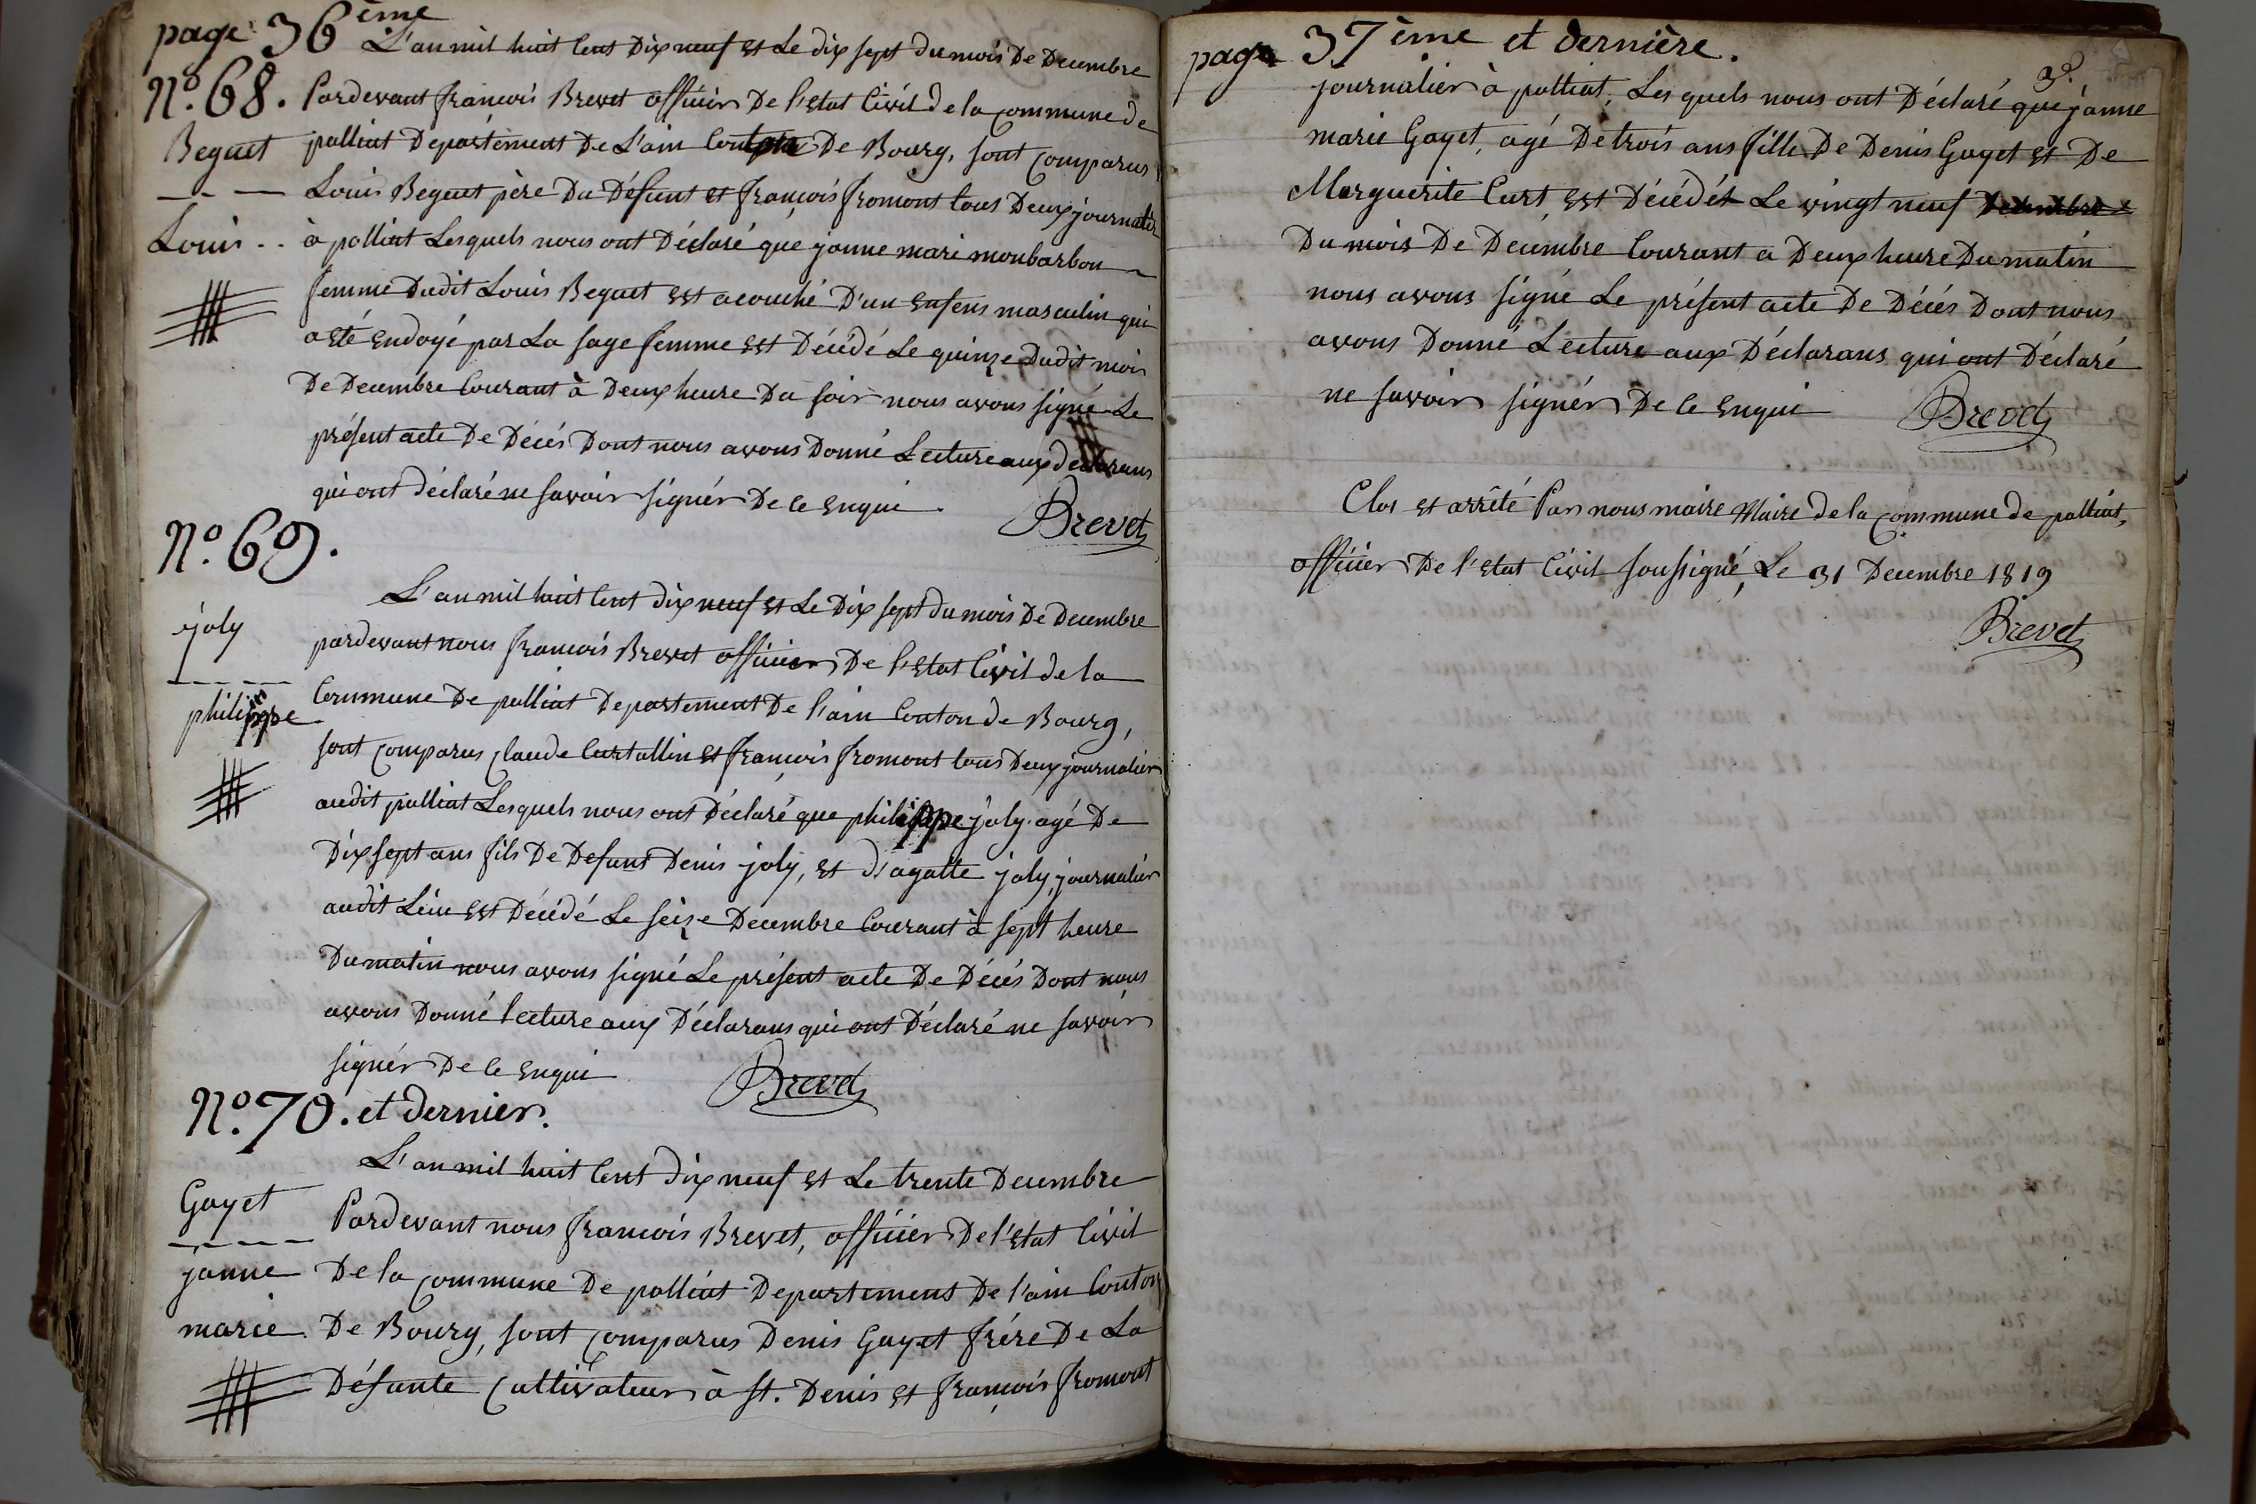 page 36ème
L'an mil huit Cent Dix neuf et Le dix sept du mois De Decembre
N.º 68. Pardevant françois Brevet officier De l'Etat Civil de la Commune de
Beguet polliat Departement De L'ain De Bourg, sont Comparus
Louis Beguet père Du Défunt et françois fromont tous Deux journalier
Louis .. à polliat Lesquels nous ont Déclaré que janne mari monbarbon
femme Dudit Louis Beguet est acouché D'un enfens masculin qui
a été endoyé par La sage femme est Décédé Le quinze Dudit mois
De Decembre Courant à Deux heure Du soir nous avons signé Le
présent acte De Décés Dont nous avons Donné Lecture aux declarans
qui ont déclaré ne savoir signér De Ce enqui
Brevet
N.º 69.
L'an mil huit Cent dix neuf et Le Dix sept du mois De Decembre
joly pardevant nous françois Brevet officier De l'Etat Civil de la
philippe Commune De polliat Departement De l'ain Conton de Bourg,
sont Comparus Claude Curtallin et françois fromont tous Deux journalier
audit polliat Lesquels nous ont Déclaré que philippe joly agé De
Dix sept ans fils De Defunt Denis joly, et d'agatte joly, journalier
audit Leiu est Décédé Le seize Decembre Courant à sept heure
Du matin nous avons signé Le présent acte De Décés Dont nous
avons Donné lecture aux Déclarans qui ont Déclaré ne savoir
signér De Ce enqui
Brevet
N.º 70. et dernier.
L'an mil huit Cent dix neuf et Le trente Decembre
Gayet Pardevant nous françois Brevet, officier De l'Etat Civil
janne De la Commune De polliat Departement De l'ain Conton
marie De Bourg, sont Comparus Denis Gayet frére De La
Défunte Cultivateur à St. Denis et françois fromont
page 37ème et dernière.
journalier à polliat, Lesquels nous ont Déclaré que janne
marie Gayet, agé De trois ans fille De Denis Gayet et De
Marguerite Curt, est Décédét Le vingt neuf Decembre
Du mois De Decembre Courant a Deux heure Du matin
nous avons signé Le présent acte De Décés Dont nous
avons Donné Lecture aux Déclarans qui ont Déclaré
ne savoir signér De Ce enqui
Brevet
Clos et arrêté Par nous maire Maire de la Commune de polliat,
officier De l'Etat Civil soussigné, Le 31 Decembre 1819
Brevet